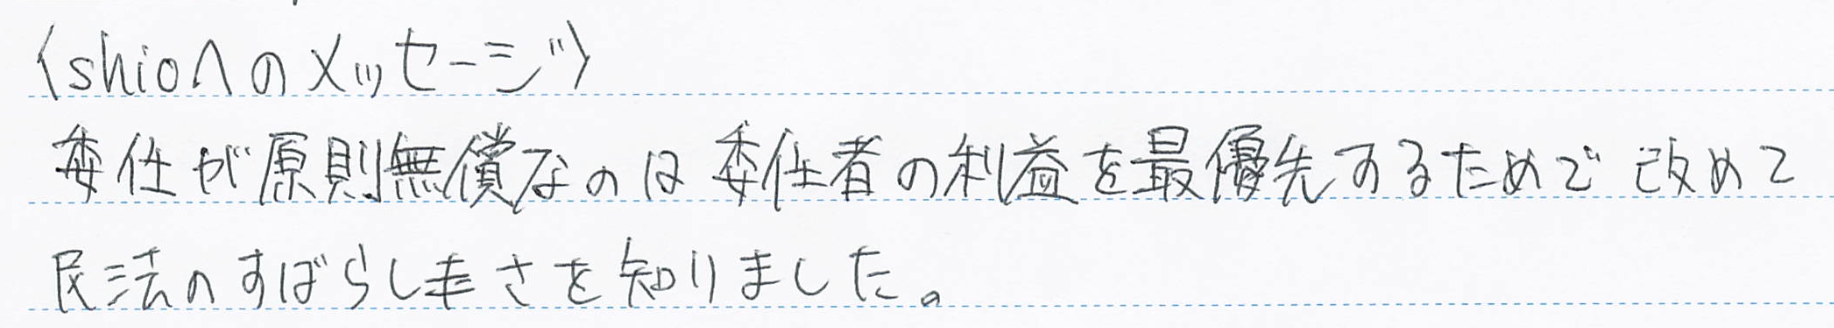 〈shioへのメッセージ〉
委任が原則無償なのは委任者の利益を最優先するためで改めて
民法のすばらしさを知りました。